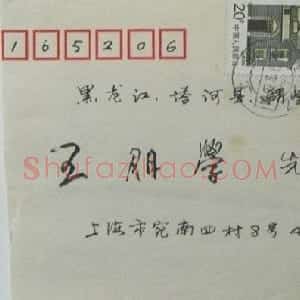 165206
20分
中国人民邮政
黑龙江、塔河县
Shufaziliao.com
王朋学先
上海市宛南四村8号